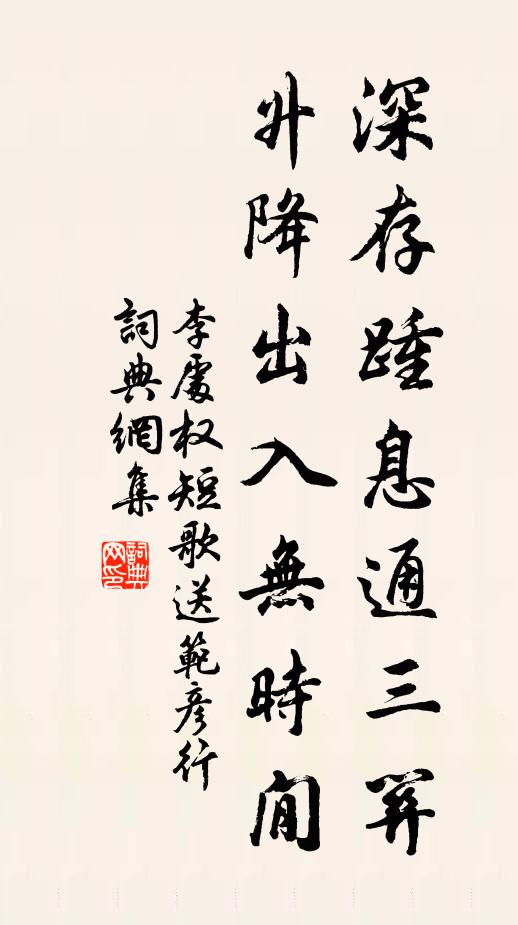 深存踵息通三關
升降出入無時閒
李處权短歌送範彥行
詞典網集
詞典網印